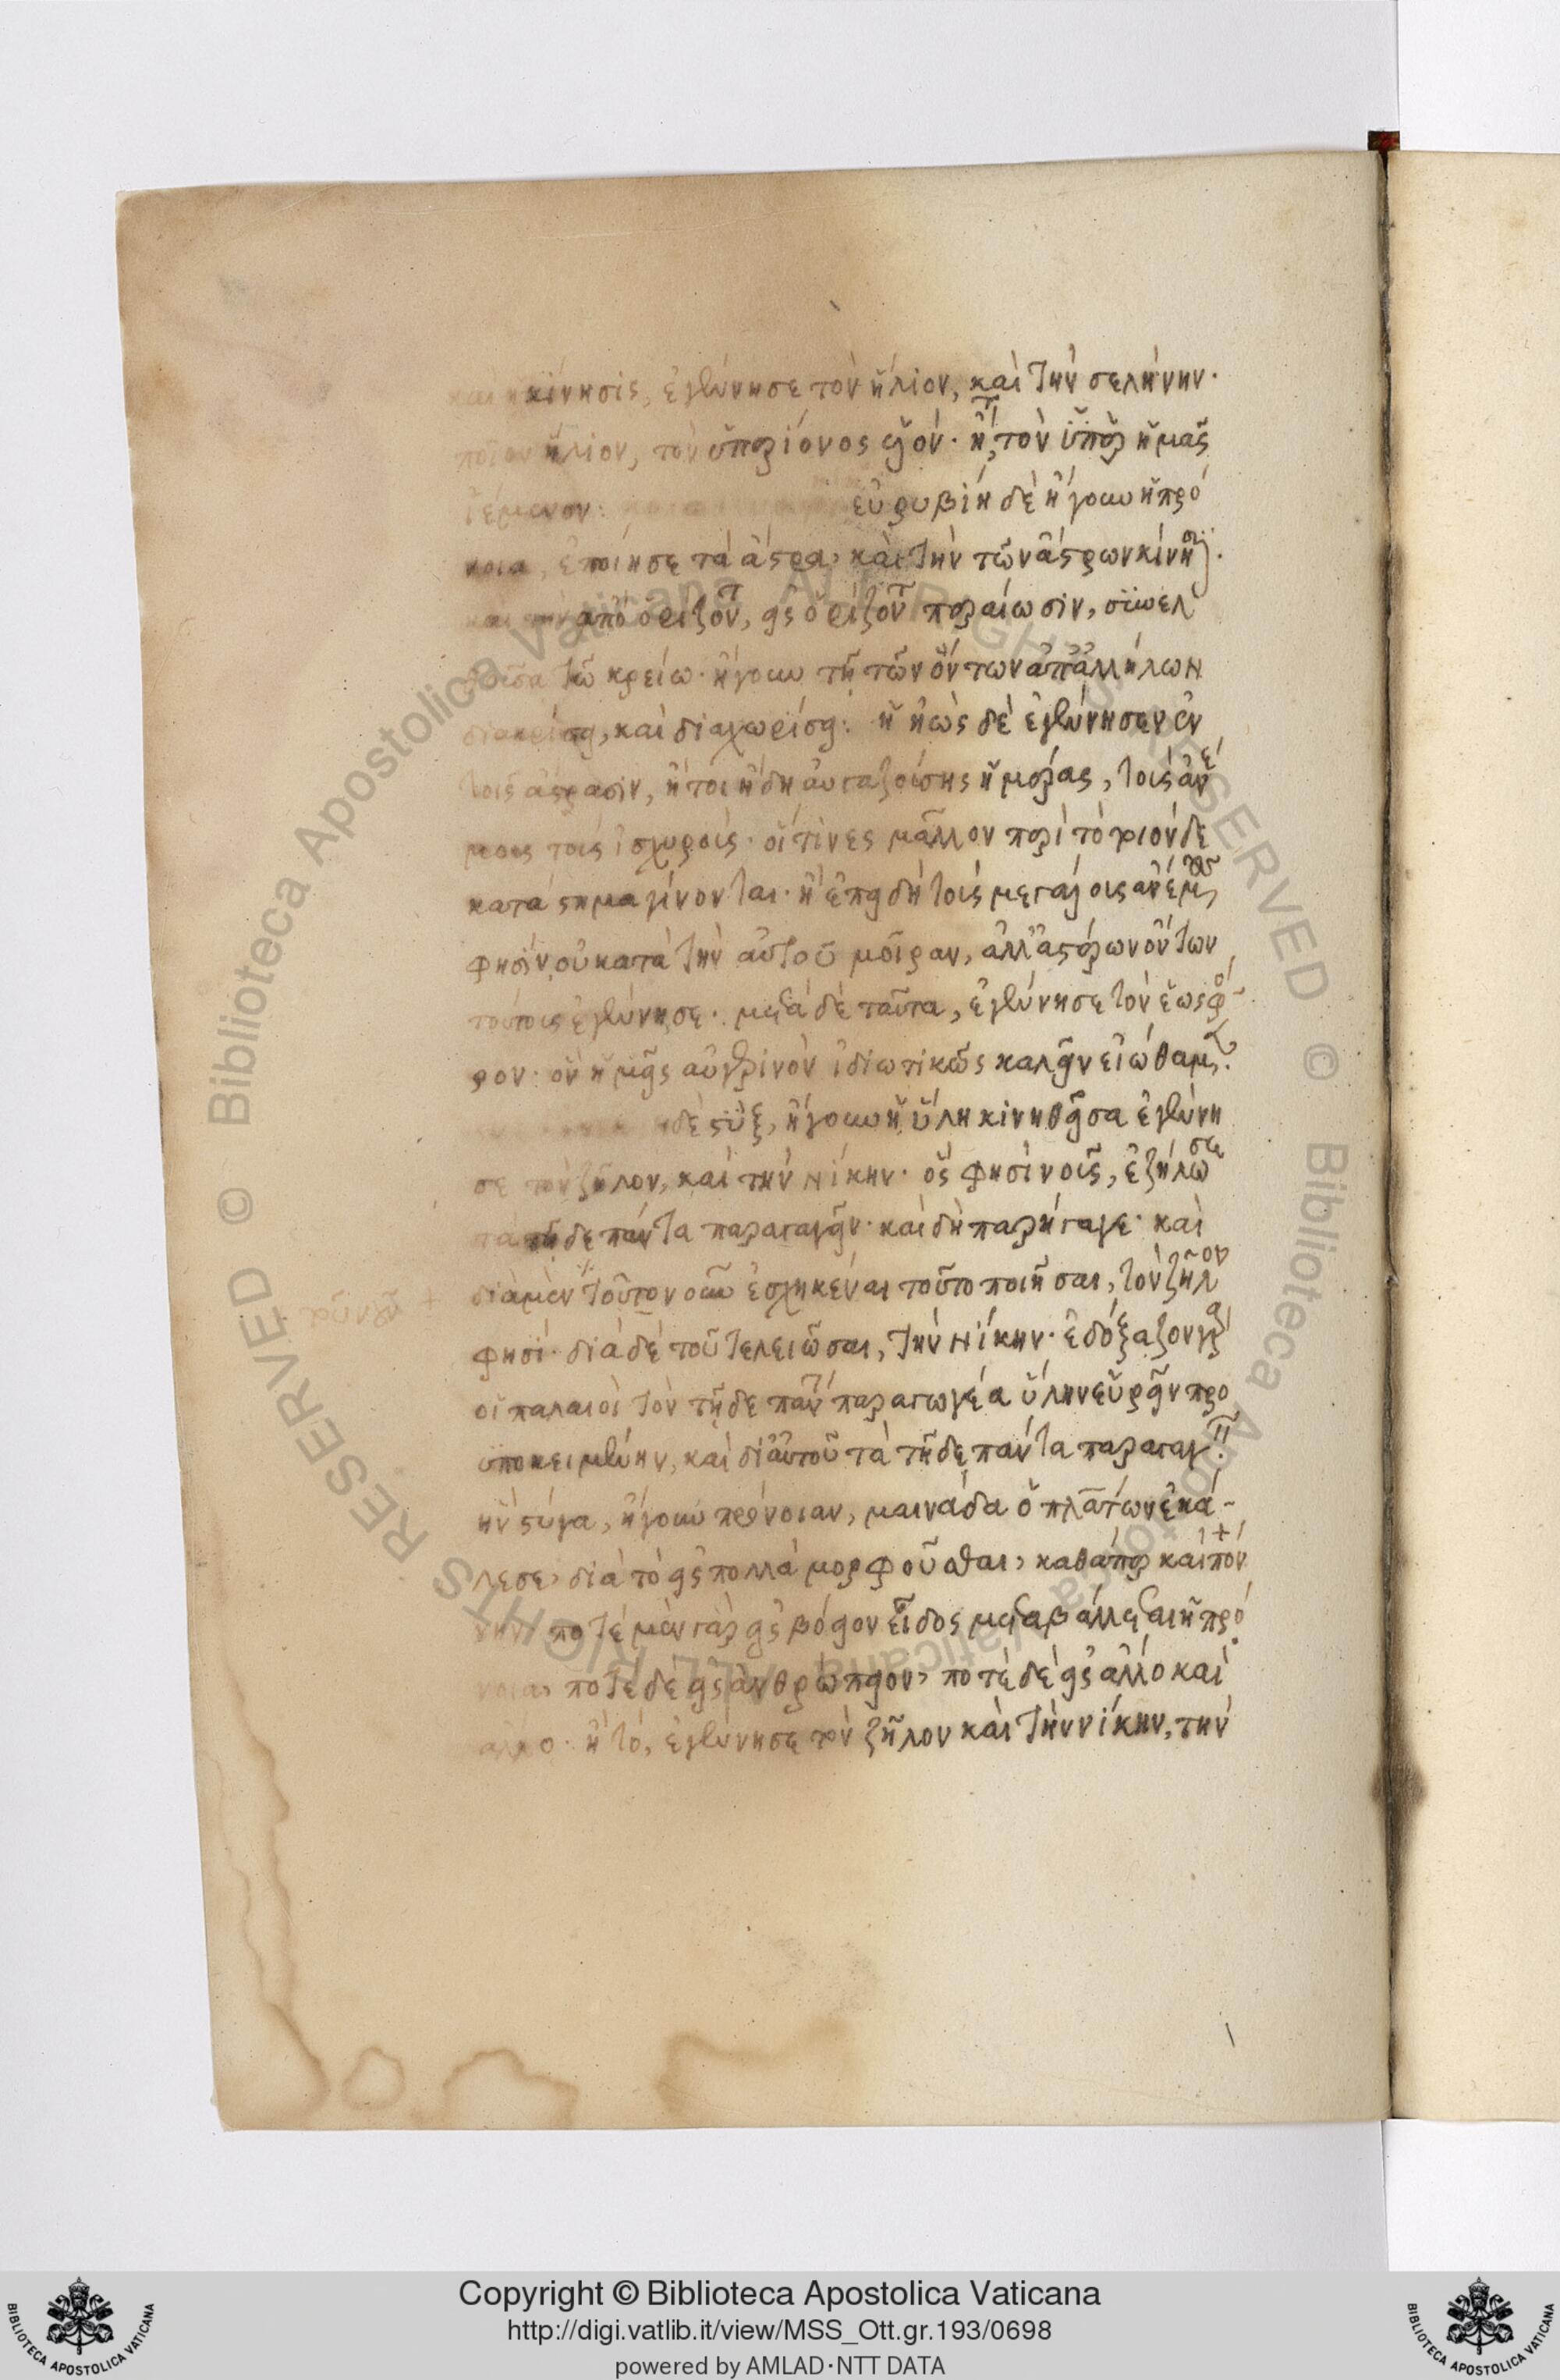 καὶ ἡ κίνησις, ἐγέννησε τὸν ἥλιον, καὶ τὴν σελήνην.
ποῖον ἥλιον, τὸν ὑπερίονος υἱόν. ἤτ, τὸν ὑπὲρ ἡμᾶς
ἱέμενον: εὐρυβίη δὲ ἤγουν ἡ πρό
νοια, ἐποίησε τὰ ἄστρα, καὶ τὴν τῶν ἄστρων κίνησιν.
καὶ τὴν ἀπὸ ὁρίζοντ, εἰς ὁρίζοντ περαίωσιν, συνελ
θοῦσα τῶ κρείω. ἤγουν τῇ τῶν ὄντων ἀπ' ἀλλήλων
διακρίσει, καὶ διαχωρίσει: ἡ ἠὼς δὲ ἐγέννησεν ἐν
τοῖς ἄστρασιν, ἤτοι ἤδη αὐγαζούσης ἡμέρας, τοὺς ἀνέ
μους τοὺς ἰσχυρούς. οἵτινες μᾶλλον περὶ τὸ
κατάστημα γίνονται. ἢ ἐπειδὴ τοὺς μεγάλους ἀνέμους
φησὶν οὐ κατὰ τὴν αὐτοῦ μοῖραν, ἀλλ' ἀστέρων ὄντων
τούτους ἐγέννησε. μετὰ δὲ ταῦτα, ἐγέννησε τὸν ἑωσφό
ρον. ὃν ἡμεῖς αὐγερινὸν ἰδιωτικῶς καλεῖν εἰώθαμεν.
δὲ στὺξ, ἤγουν ἡ ὕλη κινηθεῖσα ἐγέννη
σε τὸν ζῆλον, καὶ τὴν νίκην. ὃς φησὶ νοῦς, ἐζήλωσε
τὰ τῇδε πάντα παραγαγεῖν. καὶ δὴ παρήγαγε. καὶ
διὰ μὲν τοῦτον οὖν ἐσχηκέναι τοῦτο ποιῆσαι, τὸν ζῆλον
φησί. διὰ δὲ τοῦ τελειῶσαι, τὴν νίκην. ἐδόξαζον γὰρ
οἱ παλαιοὶ τὸν τῇδε παντ παραγωγέα ὕλην εὑρεῖν προ
ϋποκειμένην, καὶ δι' αὐτοῦ τὰ τῇδε πάντα παραγαγ
ἣν στύγα, ἤγουν πρόνοιαν, μαινάδα ὁ πλάτων ἐκά-
λεσε, διὰ τὸ εἰς πολλὰ μορφοῦσθαι, καθάπερ καὶ
ποτὲ μὲν γὰρ εἰς βόειον εἶδος μεταβάλλεται ἡ πρό
νοια, ποτὲ δὲ εἰς ἀνθρώπειον, ποτὲ δὲ εἰς ἄλλο καὶ
ἄλλο. ἢ τό, ἐγέννησε τὸν ζῆλον καὶ τὴν νίκην, τὴν
Copyright © Biblioteca Apostolica Vaticana
http://digi.vatlib.it/view/MSS_Ott.gr.193/0698
powered by AMLAD·NTT DATA